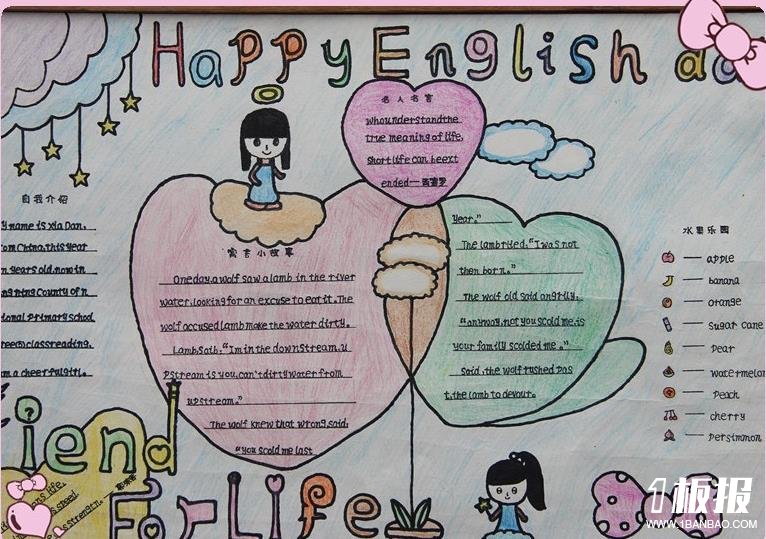 Happy English
自我介绍
y name is Xia Dan.
om China, this year
n years old, now in
ngning County of n
ional Primary school
reen) class reading.
m a cheerful girl.
名人名言
who understand the
true meaning of life,
short life can be ext
ended—西塞罗
寓言小故事
One day, a wolf saw a lamb in the river
water, looking for an excuse to eat it. The
wolf accused lamb make the water dirty.
Lamb Saib: "I'm in the downstream, u
pstream is you, can't dirty water from
upstream."
The wolf knew that wrong, said:
"you scold me last
year."
The lamb tried, "I was not
then born."
The wolf old said angrily,
"anyway, not you scold me, is
your family scolded me."
Said, the wolf rushed pas
t, the lamb to devour.
水果乐园
apple
banana
orange
sugar cane
pear
watermelon
peach
cherry
persimmon
iend
For Life
ans life,
s speed,
s strength.
1板报
WWW.1BANBAO.COM